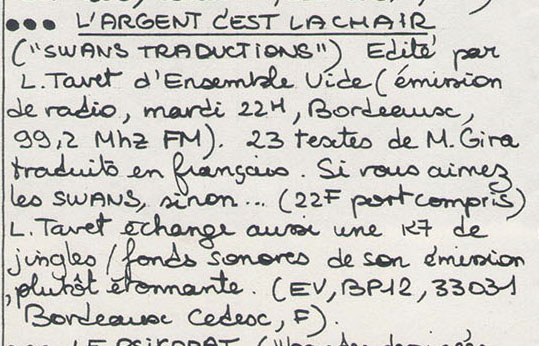 ••• L'ARGENT C'EST LA CHAIR
("SWANS TRADUCTIONS") Edité par
L. Tavet d'Ensemble Vide (émission
de radio, mardi 22H, Bordeaux,
99,2 Mhz FM). 23 textes de M. Gira
traduits en français. Si vous aimez
les SWANS, sinon... (22F port compris)
L. Tavet échange aussi une K7 de
jingles / fonds sonores de son émission
, plutôt étonnante. (EV, BP12, 33031
Bordeaux Cedesc, F).